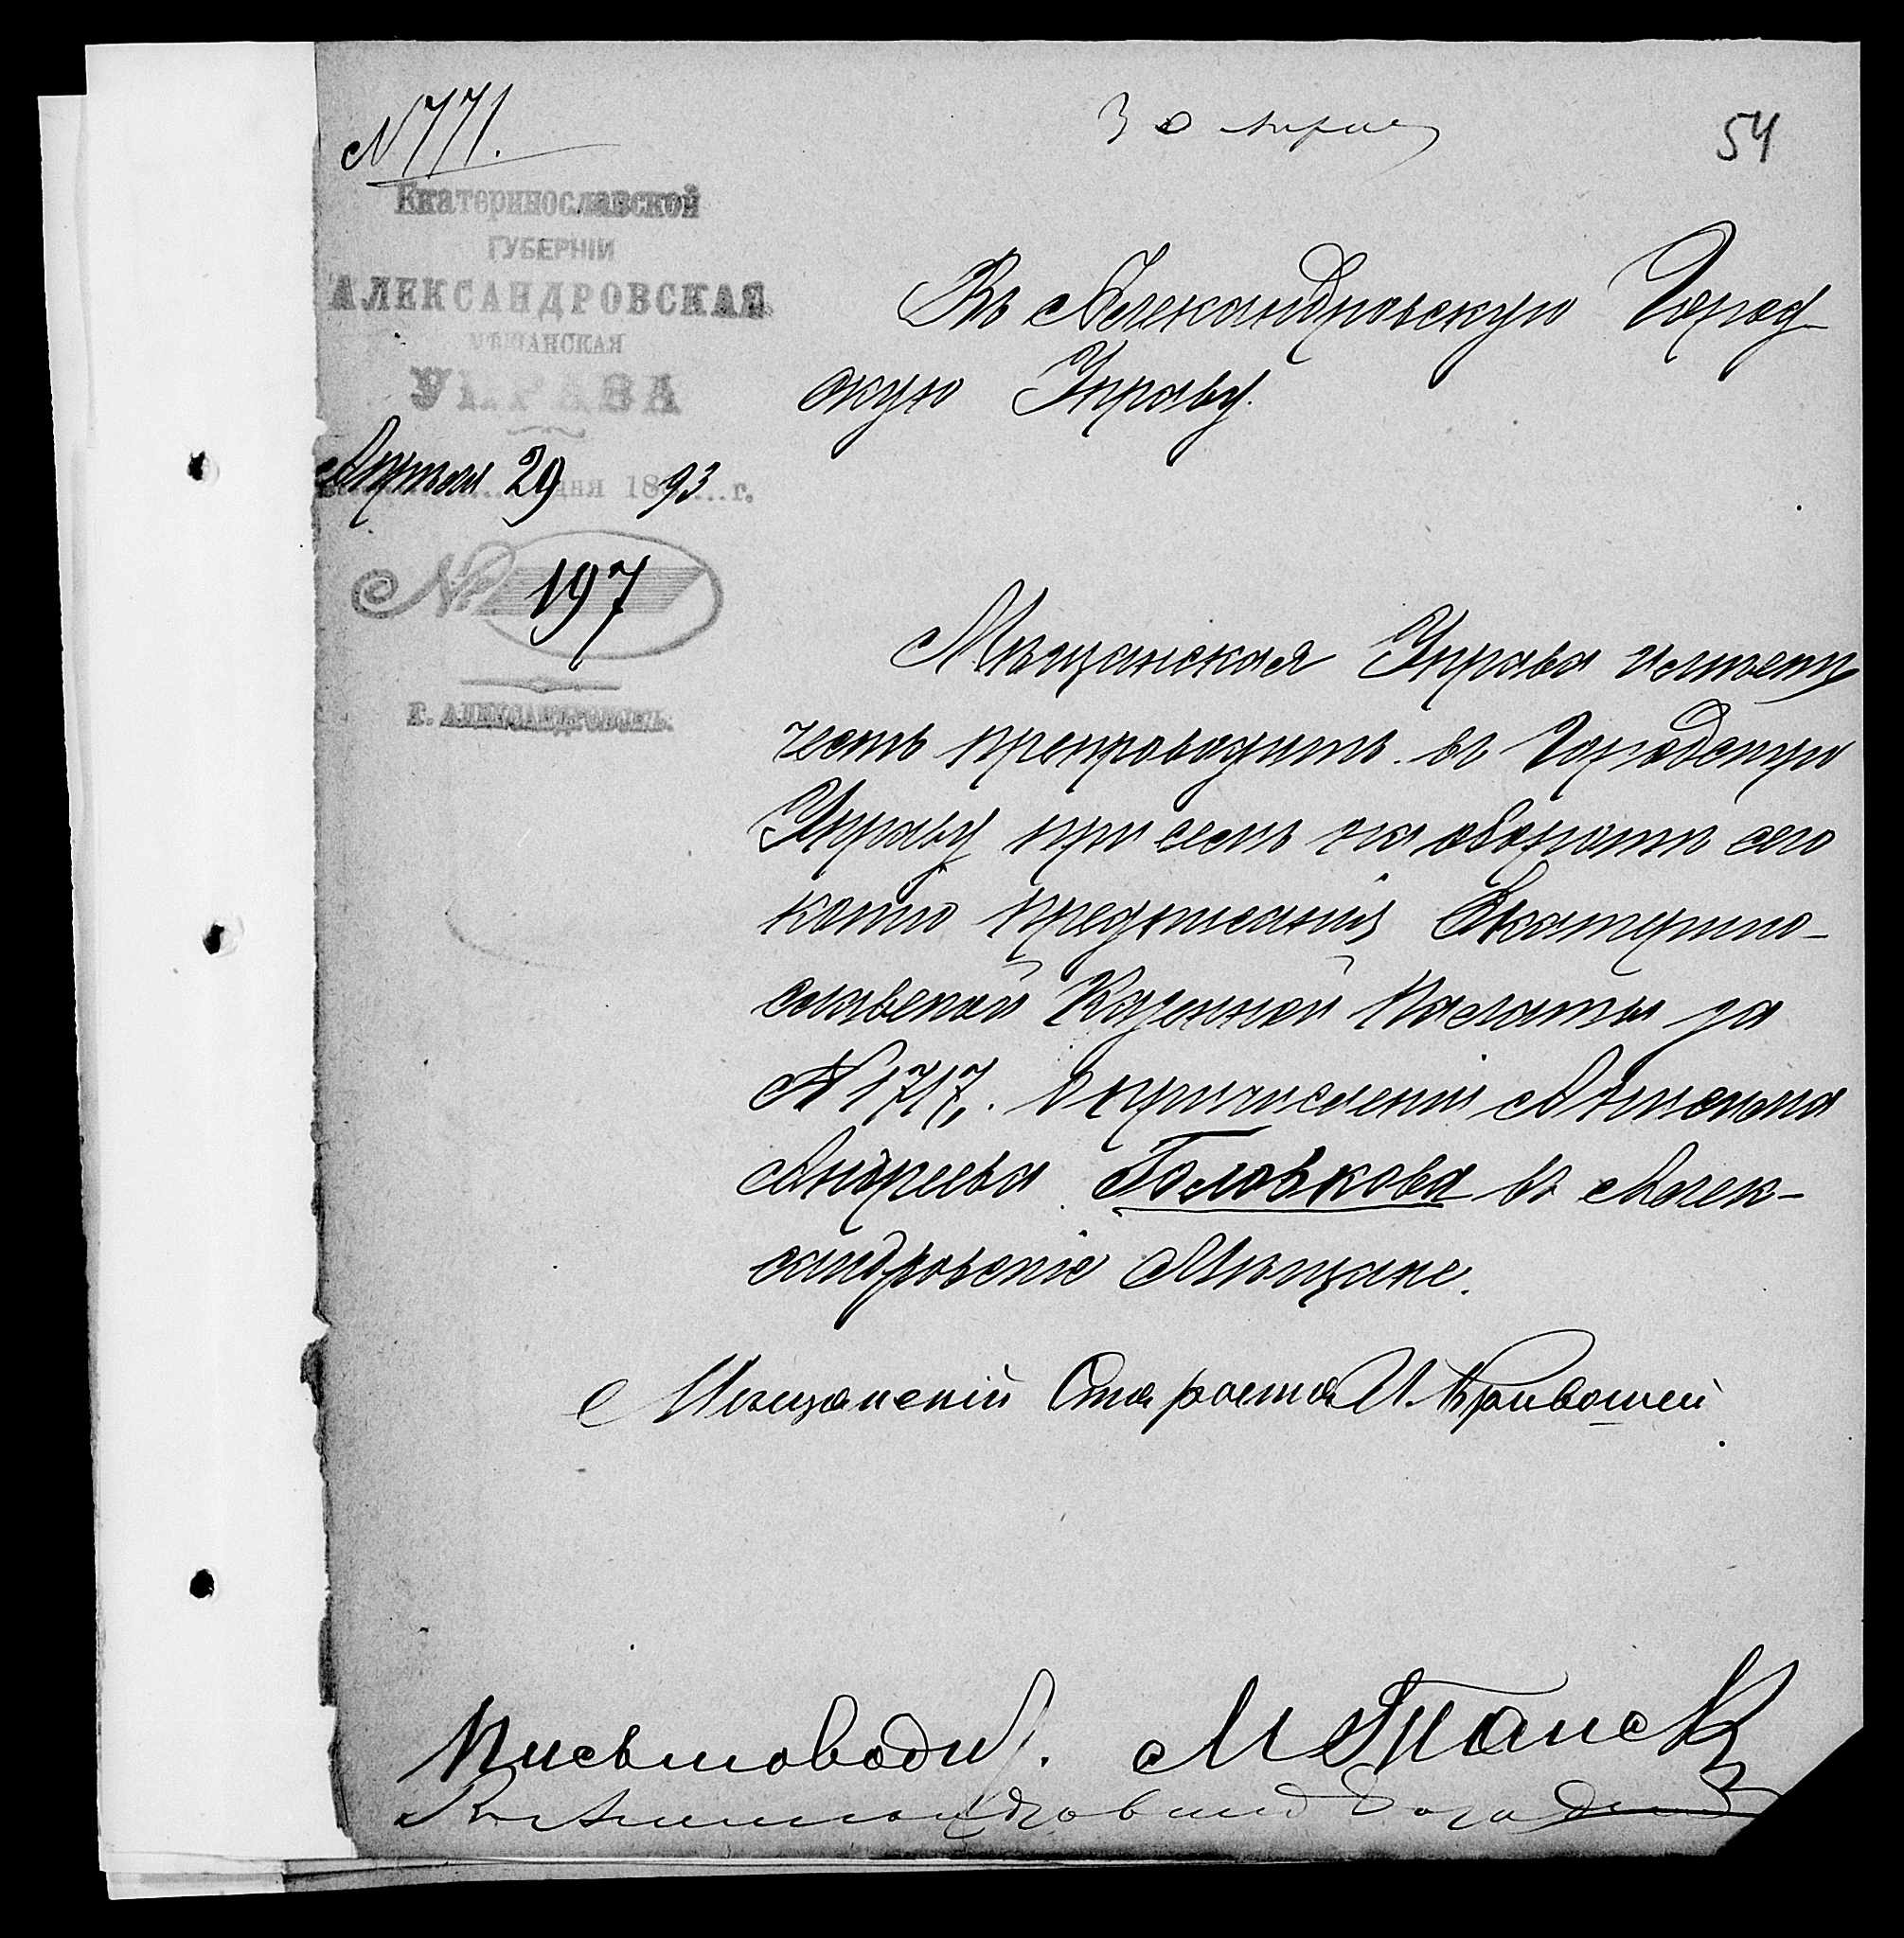 N 771.
30 апреля
54
Екатеринославской
ГУБЕРНІИ
АЛЕКСАНДРОВСКАЯ
МѢЩАНСКАЯ
УПРАВА
Апреля 29 дня 1893 г.
№ 197
г. АЛЕКСАНДРОВСКЪ.
Въ Александровскую Город-
скую Управу.
Мѣщанская Управа имѣетъ
честь препроводить въ Городскую
Управу при семъ на оборотѣ сего
копію предписанія Екатерино-
славской Казенной Палаты за
N 1717, о причисленіи
Андреева Головкова въ Алек-
сандровскіе Мѣщане.
Мѣщанскій Староста И. Кривошей
Письмоводи. М